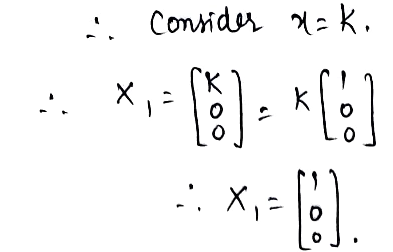 ∴ Consider x = K.
∴ X₁ = [K 0 0] = K [1 0 0]
∴ X₁ = [1 0 0].